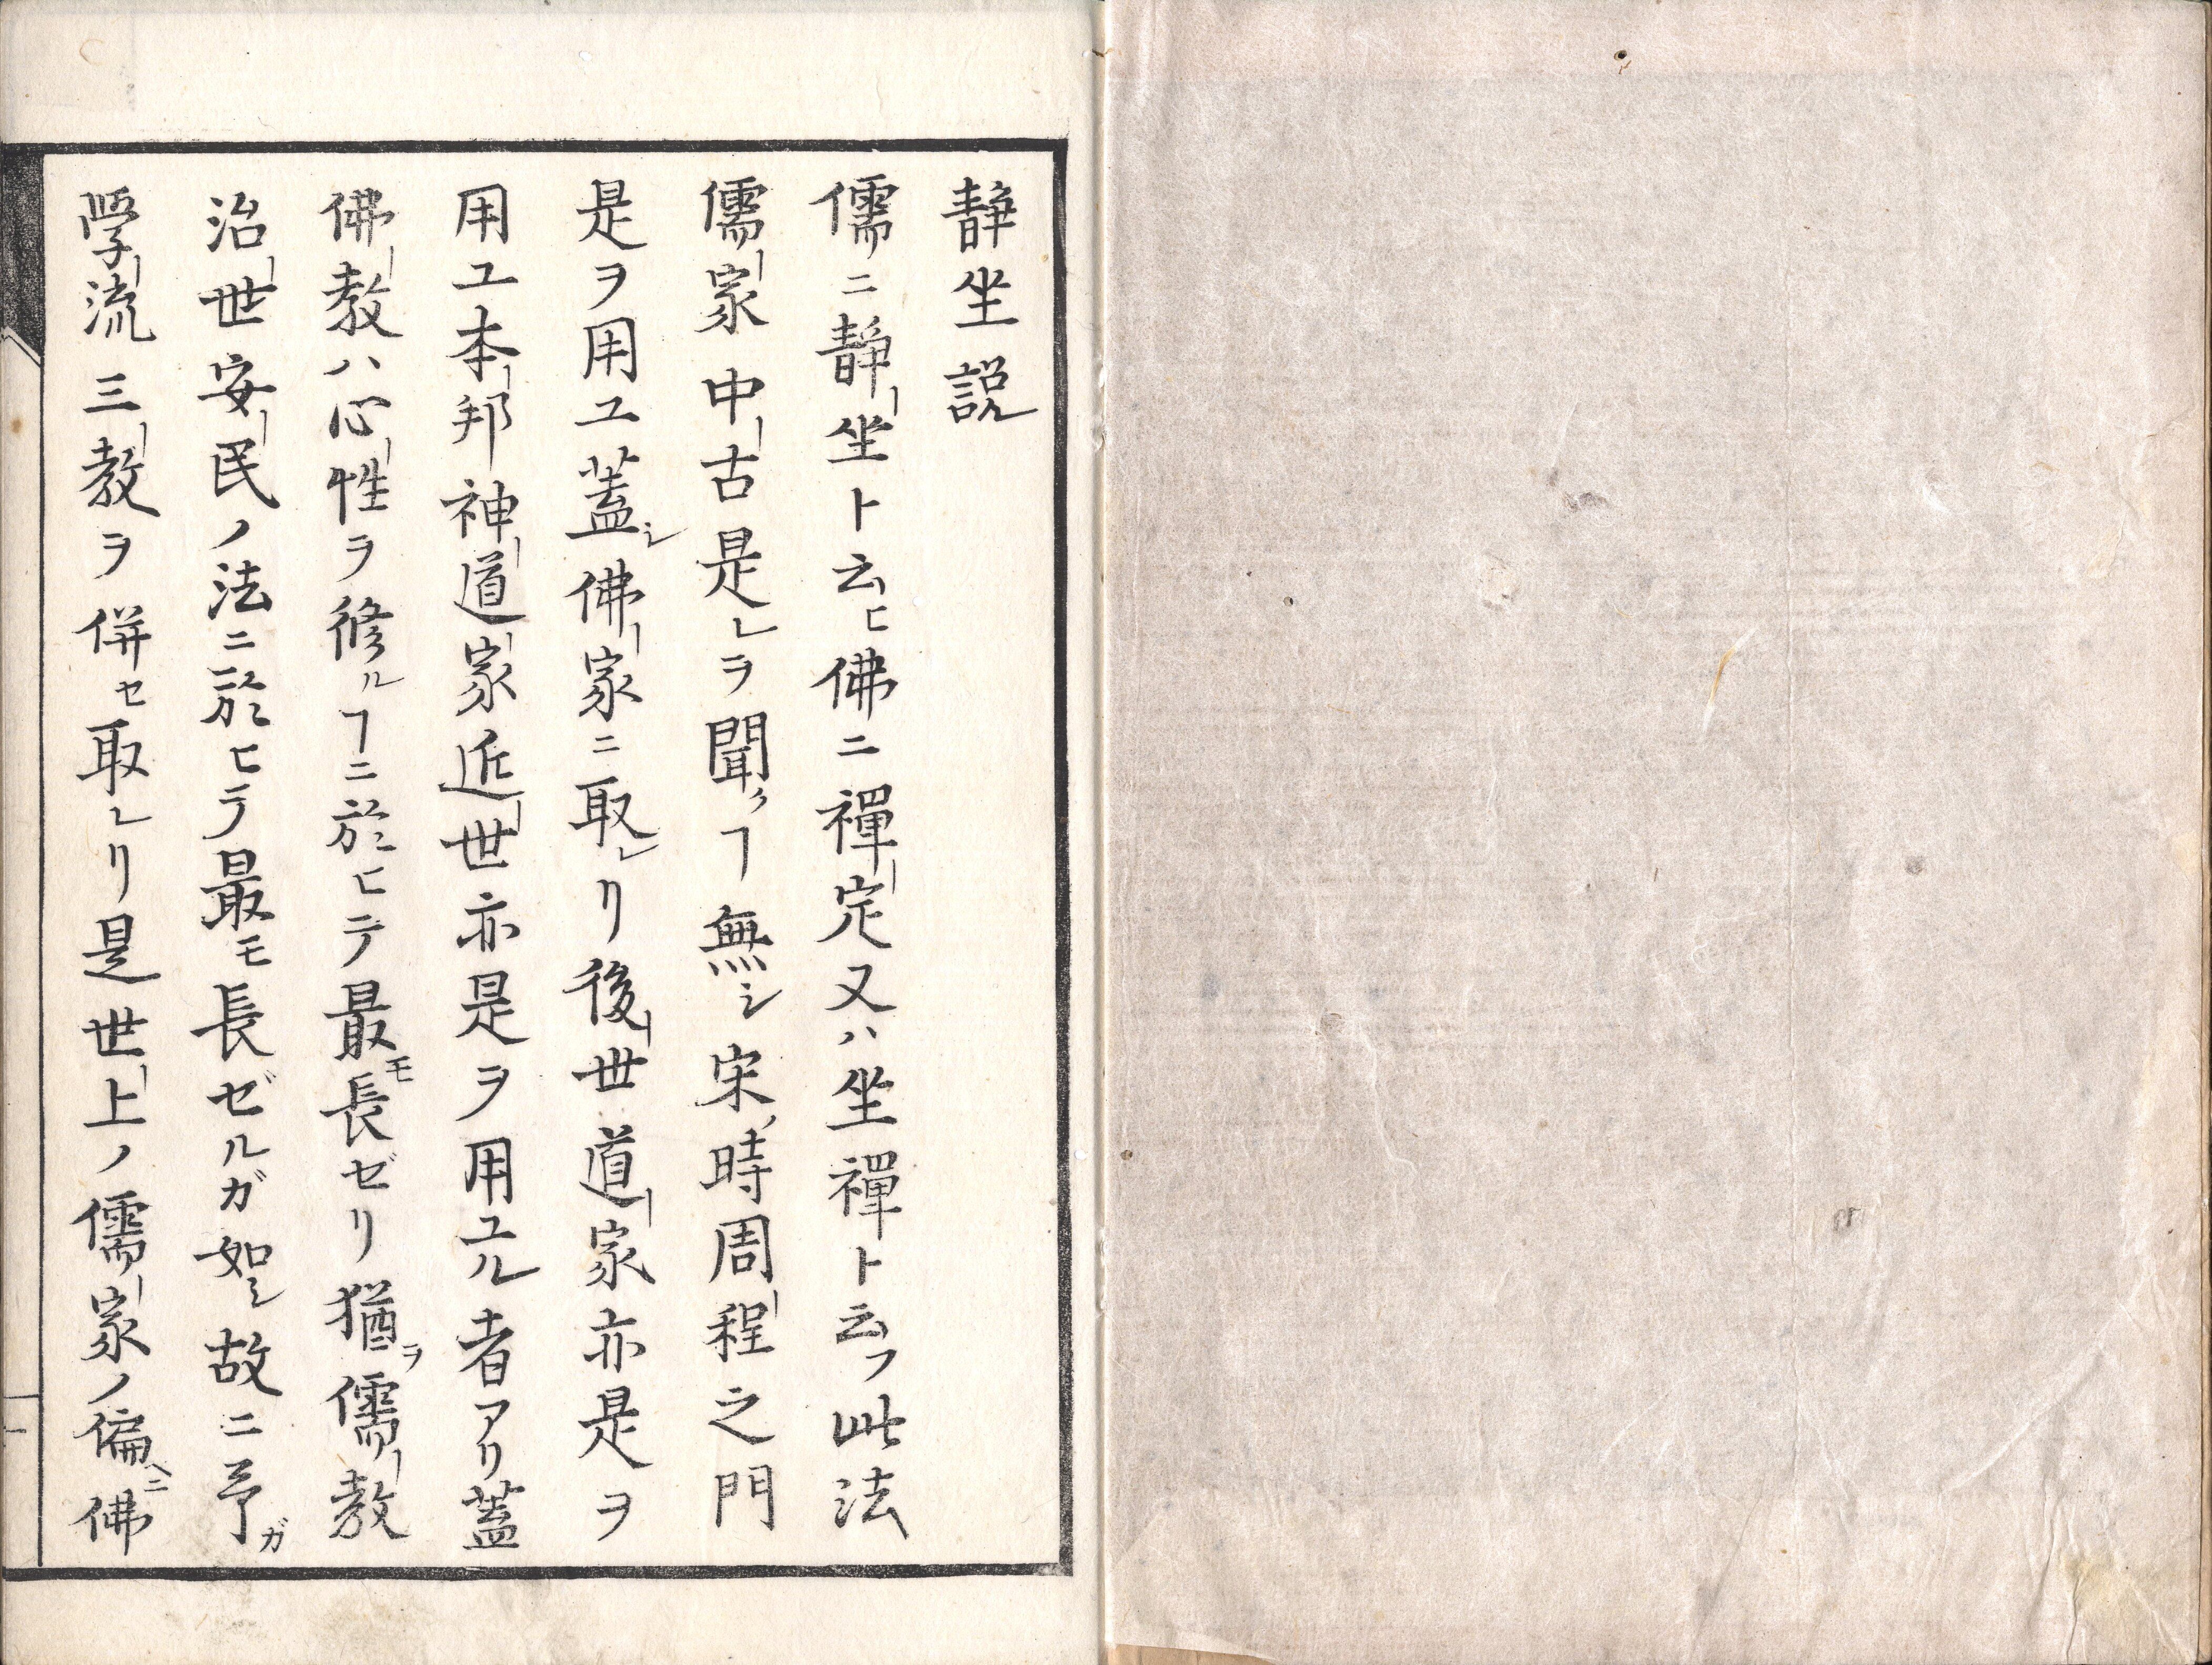 靜坐説
儒ニ靜坐ト云ヒ佛ニ禪定又ハ坐禪ト云フ此法
儒家中古是レヲ聞クヿ無シ宋ノ時周程之門
是ヲ用ユ蓋シ佛家ニ取レリ後世道家亦是ヲ
用ユ本邦神道家近世亦是ヲ用ユル者アリ蓋
佛教ハ心性ヲ修ルヿニ於ヒテ最モ長ゼリ猶ヲ儒教
治世安民ノ法ニ於ヒテ最モ長ゼルガ如シ故ニ予ガ
學流三教ヲ併セ取レリ是世上ノ儒家ノ偏ヘニ佛